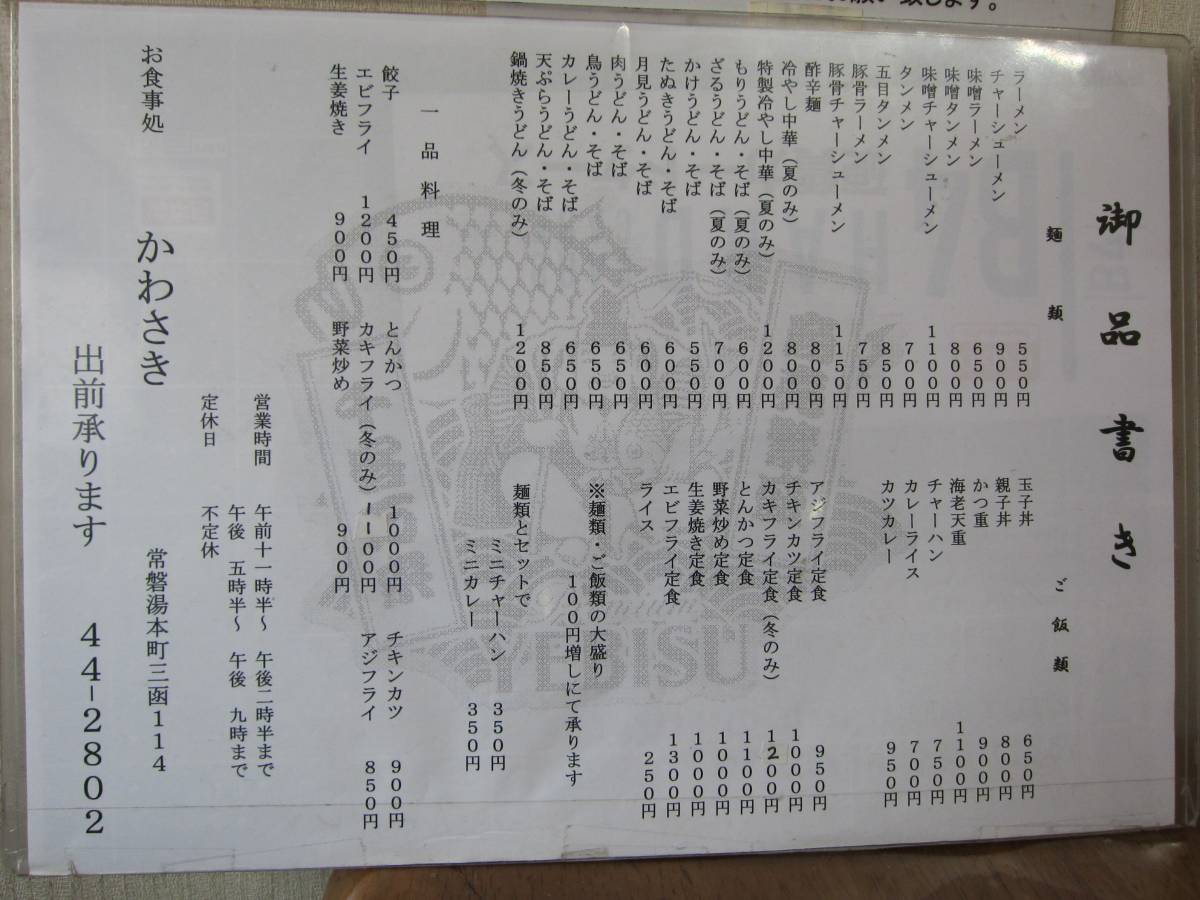 願い致します。
御品書き
麺類
ラーメン 550円
チャーシューメン 900円
味噌ラーメン 650円
味噌タンメン 800円
味噌チャーシューメン 1100円
タンメン 700円
五目タンメン 850円
豚骨ラーメン 750円
豚骨チャーシューメン 1150円
酢辛麺 800円
冷やし中華(夏のみ) 800円
特製冷やし中華(夏のみ) 1200円
もりうどん・そば(夏のみ) 600円
ざるうどん・そば(夏のみ) 700円
かけうどん・そば 550円
たぬきうどん・そば 600円
月見うどん・そば 600円
肉うどん・そば 650円
鳥うどん・そば 650円
カレーうどん・そば 650円
天ぷらうどん・そば 850円
鍋焼きうどん(冬のみ) 1200円
ご飯類
玉子丼 650円
親子丼 800円
かつ重 900円
海老天重 1100円
チャーハン 750円
カレーライス 700円
カツカレー 950円
アジフライ定食 950円
チキンカツ定食 1000円
カキフライ定食(冬のみ) 1200円
とんかつ定食 1100円
野菜炒め定食 1000円
生姜焼き定食 1000円
エビフライ定食 1300円
ライス 250円
※麺類・ご飯類の大盛り
100円増しにて承ります
麺類とセットで
ミニチャーハン 350円
ミニカレー 350円
一品料理
餃子 450円 とんかつ 1000円 チキンカツ 900円
エビフライ 1200円 カキフライ(冬のみ) 1100円 アジフライ 850円
生姜焼き 900円 野菜炒め 900円
営業時間 午前十一時半〜 午後二時半まで
午後 五時半〜 午後 九時まで
定休日 不定休
お食事処 かわさき 常磐湯本町三函114
出前承ります 44-2802
Premium
YEBISU